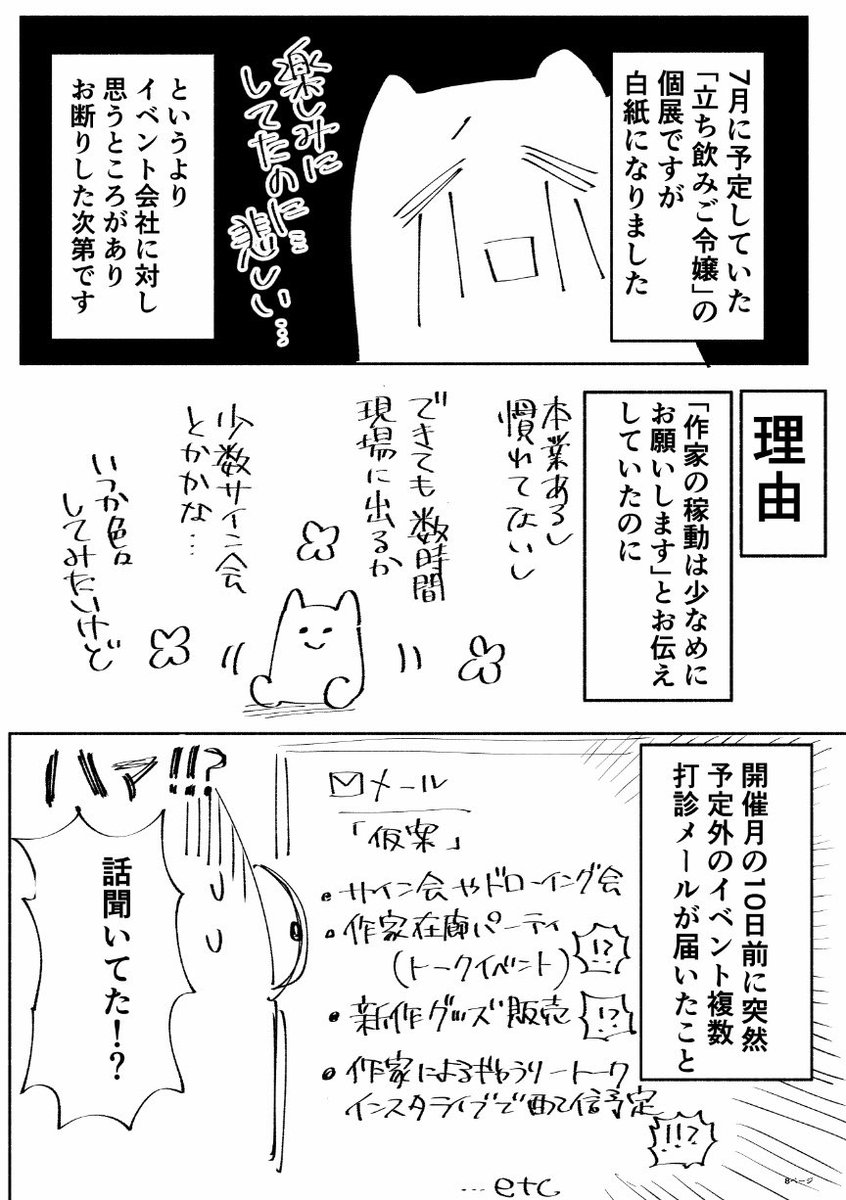 7月に予定していた
「立ち飲みご令嬢」の
個展ですが
白紙になりました
楽しみに
してたのに…
悲しい…
というより
イベント会社に対し
思うところがあり
お断りした次第です
理由
「作家の稼動は少なめに
お願いします」とお伝え
していたのに
本業あるし
慣れてないし
できても数時間
現場に出るか
少数サイン会
とかかな…
いつか色々
してみたいけど
開催月の10日前に突然
予定外のイベント複数
打診メールが届いたこと
メール
「仮案」
・サイン会やドローイング会
・作家在廊パーティ
(トークイベント)
!?
・新作グッズ販売
!?
・作家によるギャラリートーク
インスタライブで配信予定
!!?
…etc
ハァ!!?
話聞いてた!?
8ページ